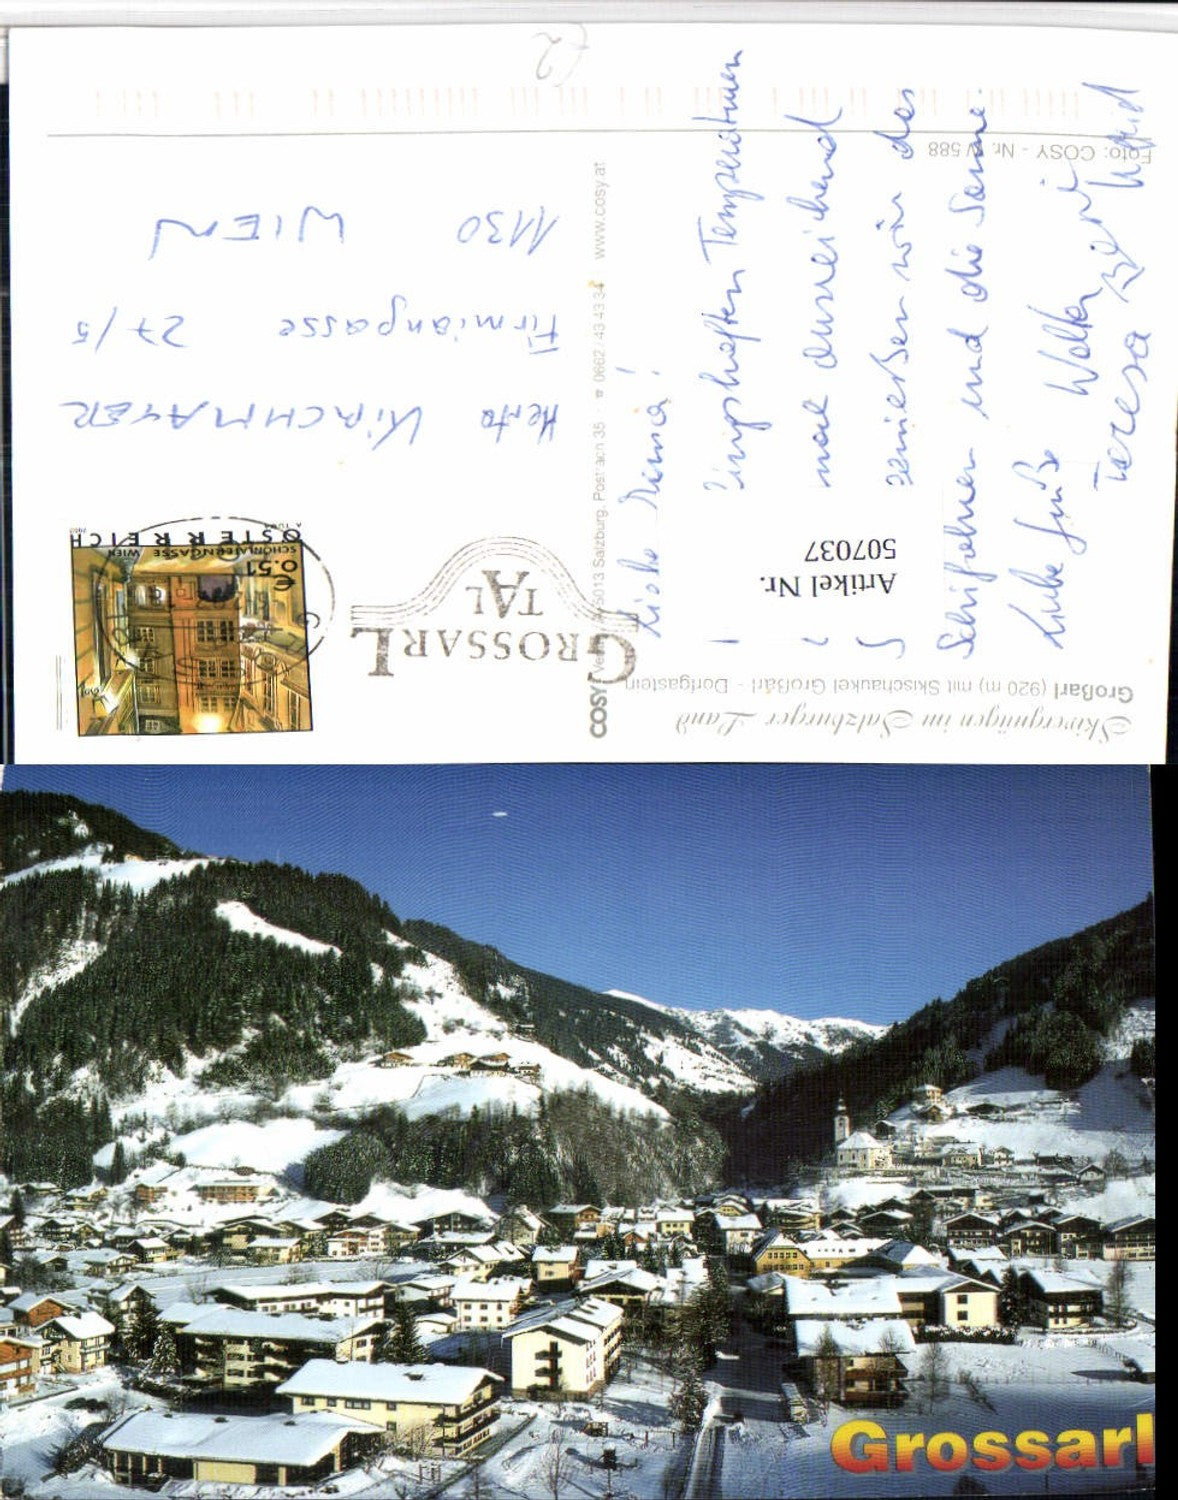 Skivergnügen im Salzburger Land
Großarl (920 m) mit Skischaukel Großarl - Dorfgastein
Artikel Nr.
507037
Liebe Mima!
Temperaturen
und ausreichend
genießen wir das
Schifahren und die Sonne.
Liebe Grüße Walter
Teresa
Foto: COSY - Nr. W 588
COSY Verlag, 5013 Salzburg, Postfach 35 · ☎ 0662 / 43 43 34 · www.cosy.at
GROSSARL
TAL
€
0.51
SCHÖNLATERNGASSE WIEN
ÖSTERREICH
2002
Herta KIRCHMAYER
Firmiangasse 27/5
1130 WIEN
Grossarl